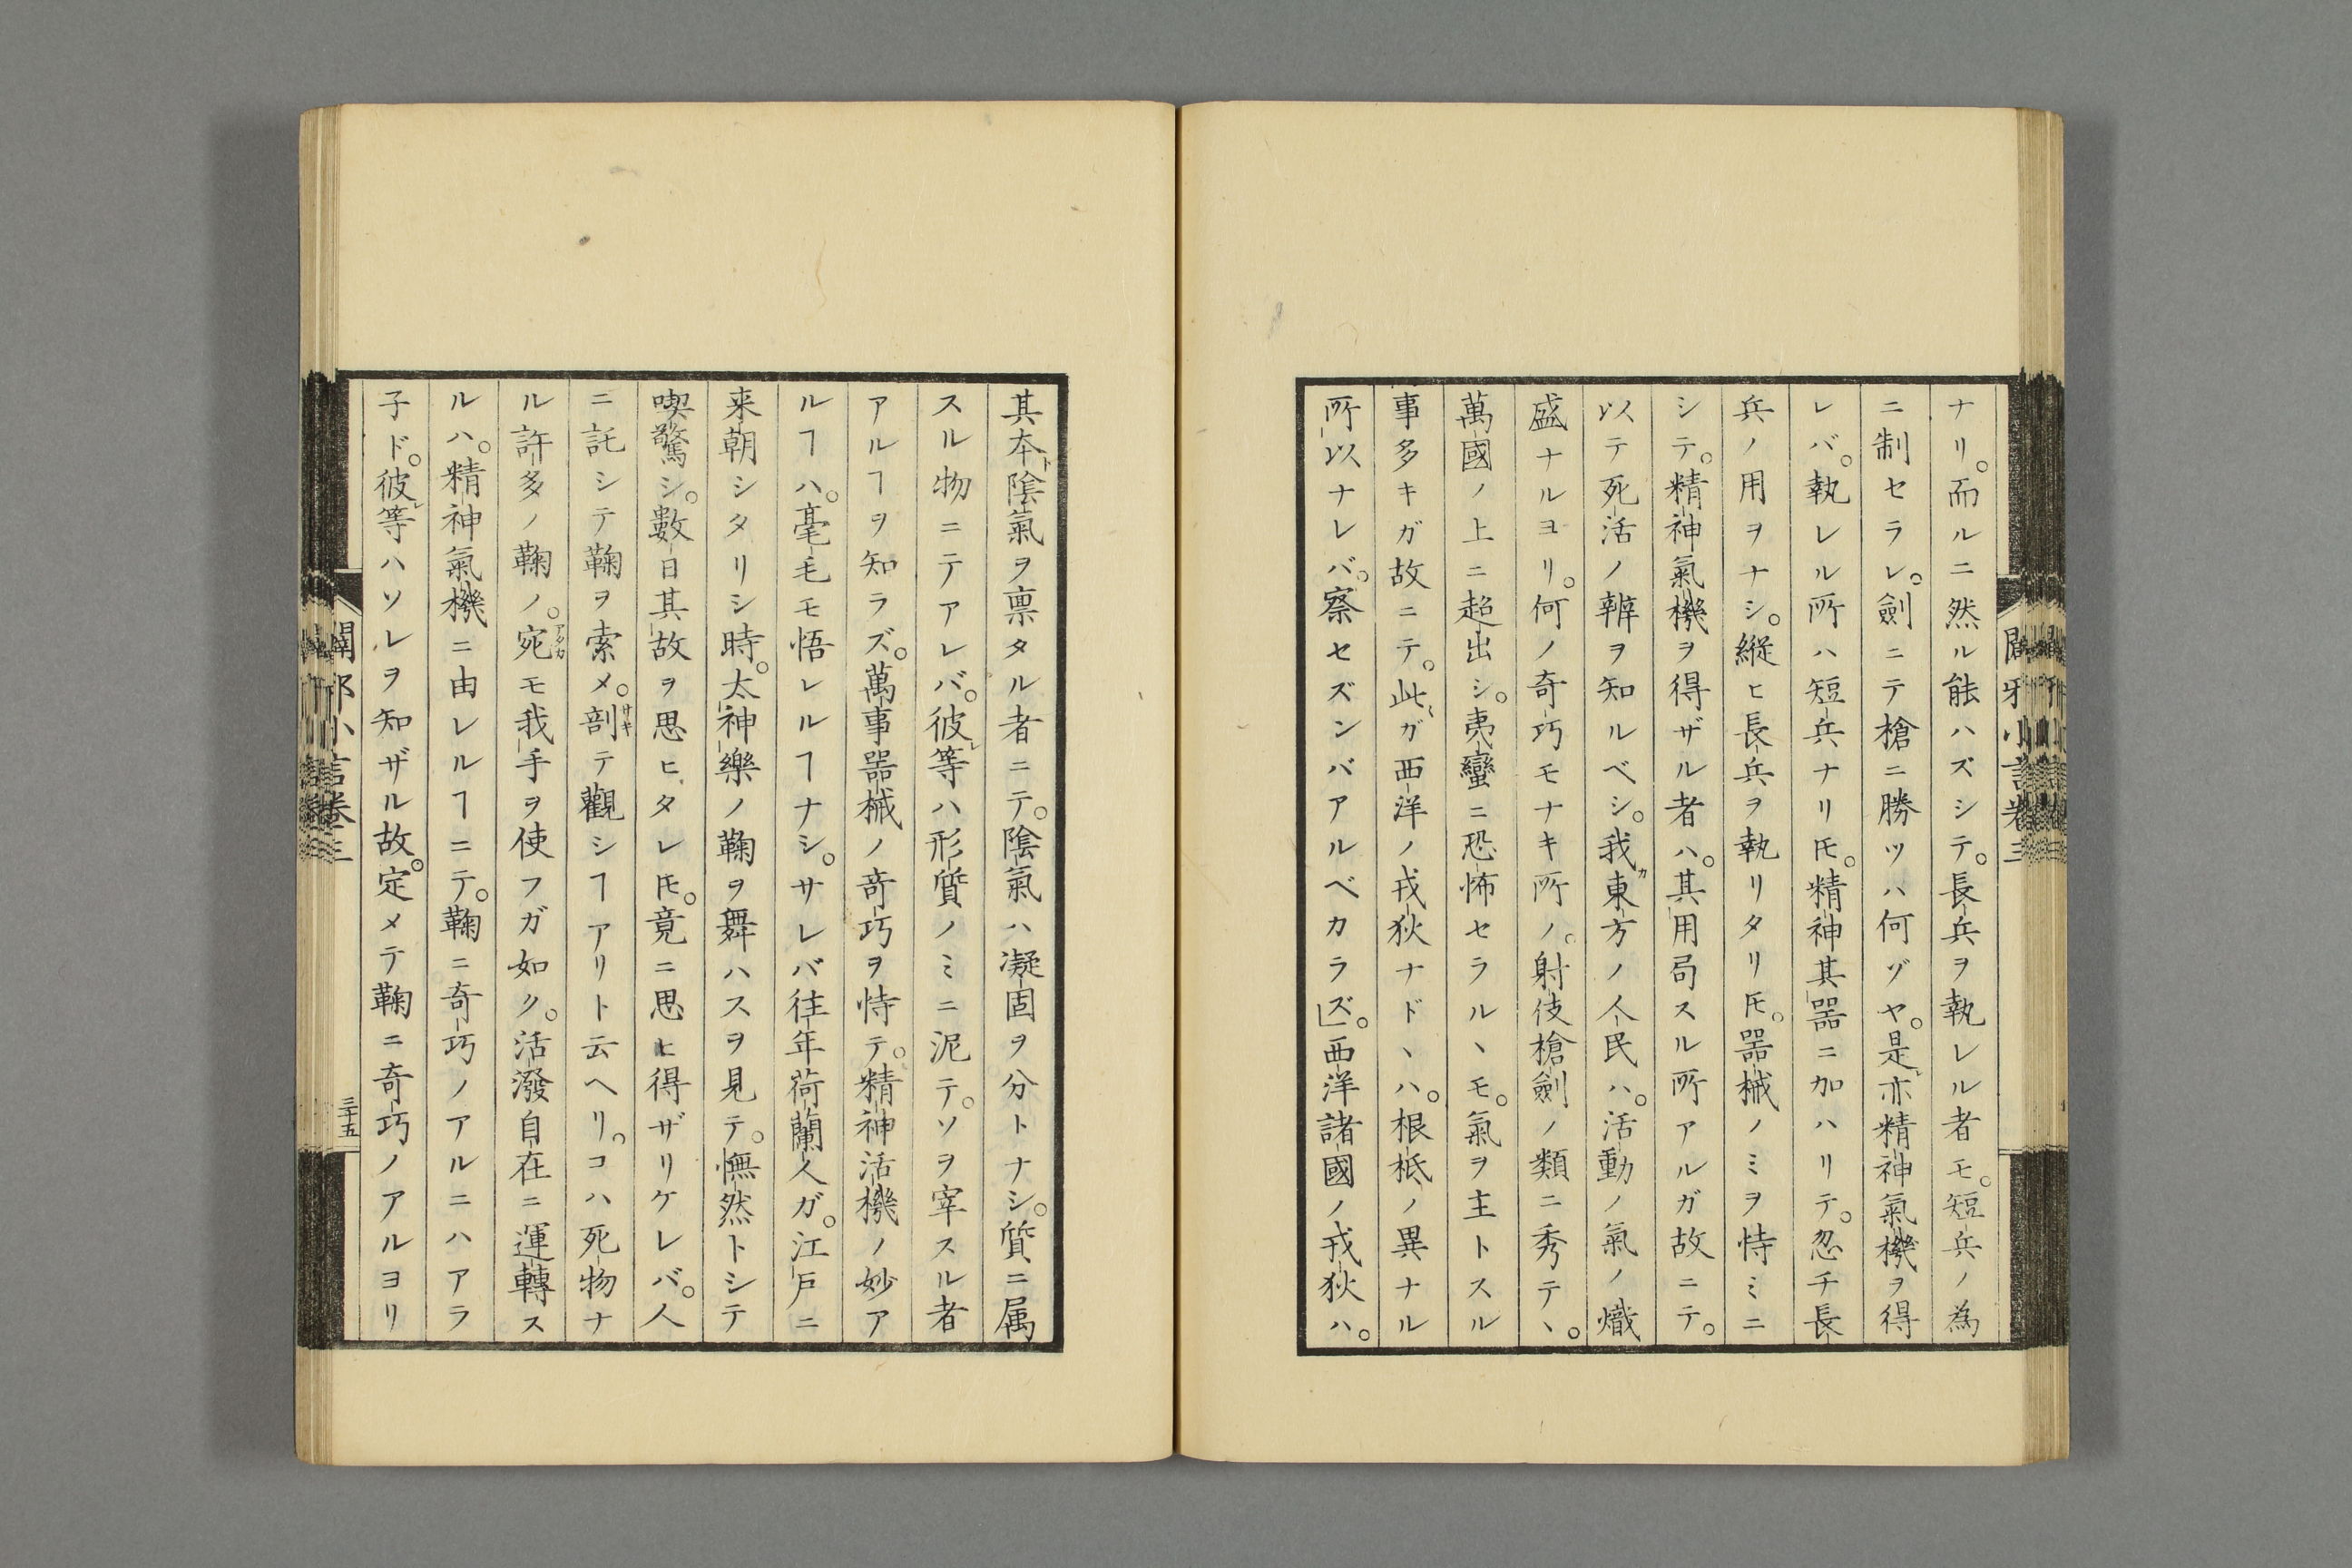 ナリ。而ルニ然ル能ハズシテ。長兵ヲ執レル者モ。短兵ノ為
ニ制セラレ。劍ニテ槍ニ勝ツハ何ゾヤ。是レ亦精神氣機ヲ得
レバ。執レル所ハ短兵ナリ𪜈。精神其器ニ加ハリテ。忽チ長
兵ノ用ヲナシ。縱ヒ長兵ヲ執リタリ𪜈。器械ノミヲ恃ミニ
シテ。精神氣機ヲ得ザル者ハ。其用局スル所アルガ故ニテ。
以テ死活ノ辨ヲ知ルベシ。我カ東方ノ人民ハ。活動ノ氣ノ熾
盛ナルヨリ。何ノ奇巧モナキ所ノ。射伎槍劍ノ類ニ秀テヽ。
萬國ノ上ニ超出シ。夷蠻ニ恐怖セラルヽモ。氣ヲ主トスル
事多キガ故ニテ。此ガ西洋ノ戎狄ナドヽハ。根柢ノ異ナル
所以ナレバ。察セズンバアルベカラズ」。西洋諸國ノ戎狄ハ。
其本ト陰氣ヲ禀タル者ニテ。陰氣ハ凝固ヲ分トナシ。質ニ属
スル物ニテアレバ。彼レ等ハ形質ノミニ泥テ。ソヲ宰スル者
アルヿヲ知ラズ。萬事器械ノ奇巧ヲ恃テ。精神活機ノ妙ア
ルヿハ。毫毛モ悟レルヿナシ。サレバ往年荷蘭人ガ。江戸ニ
来朝シタリシ時。太神樂ノ鞠ヲ舞ハスヲ見テ。憮然トシテ
喫驚シ。數日其故ヲ思ヒタレ𪜈。竟ニ思ヒ得ザリケレバ。人
ニ託シテ鞠ヲ索メ。剖サキテ觀シヿアリト云ヘリ。コハ死物ナ
ル許多ノ鞠ノ。宛アタカモ我手ヲ使フガ如ク。活潑自在ニ運轉ス
ルハ。精神氣機ニ由レルヿニテ。鞠ニ奇巧ノアルニハアラ
子ド。彼レ等ハソレヲ知ザル故。定メテ鞠ニ奇巧ノアルヨリ
闢邪小言卷三
三十五